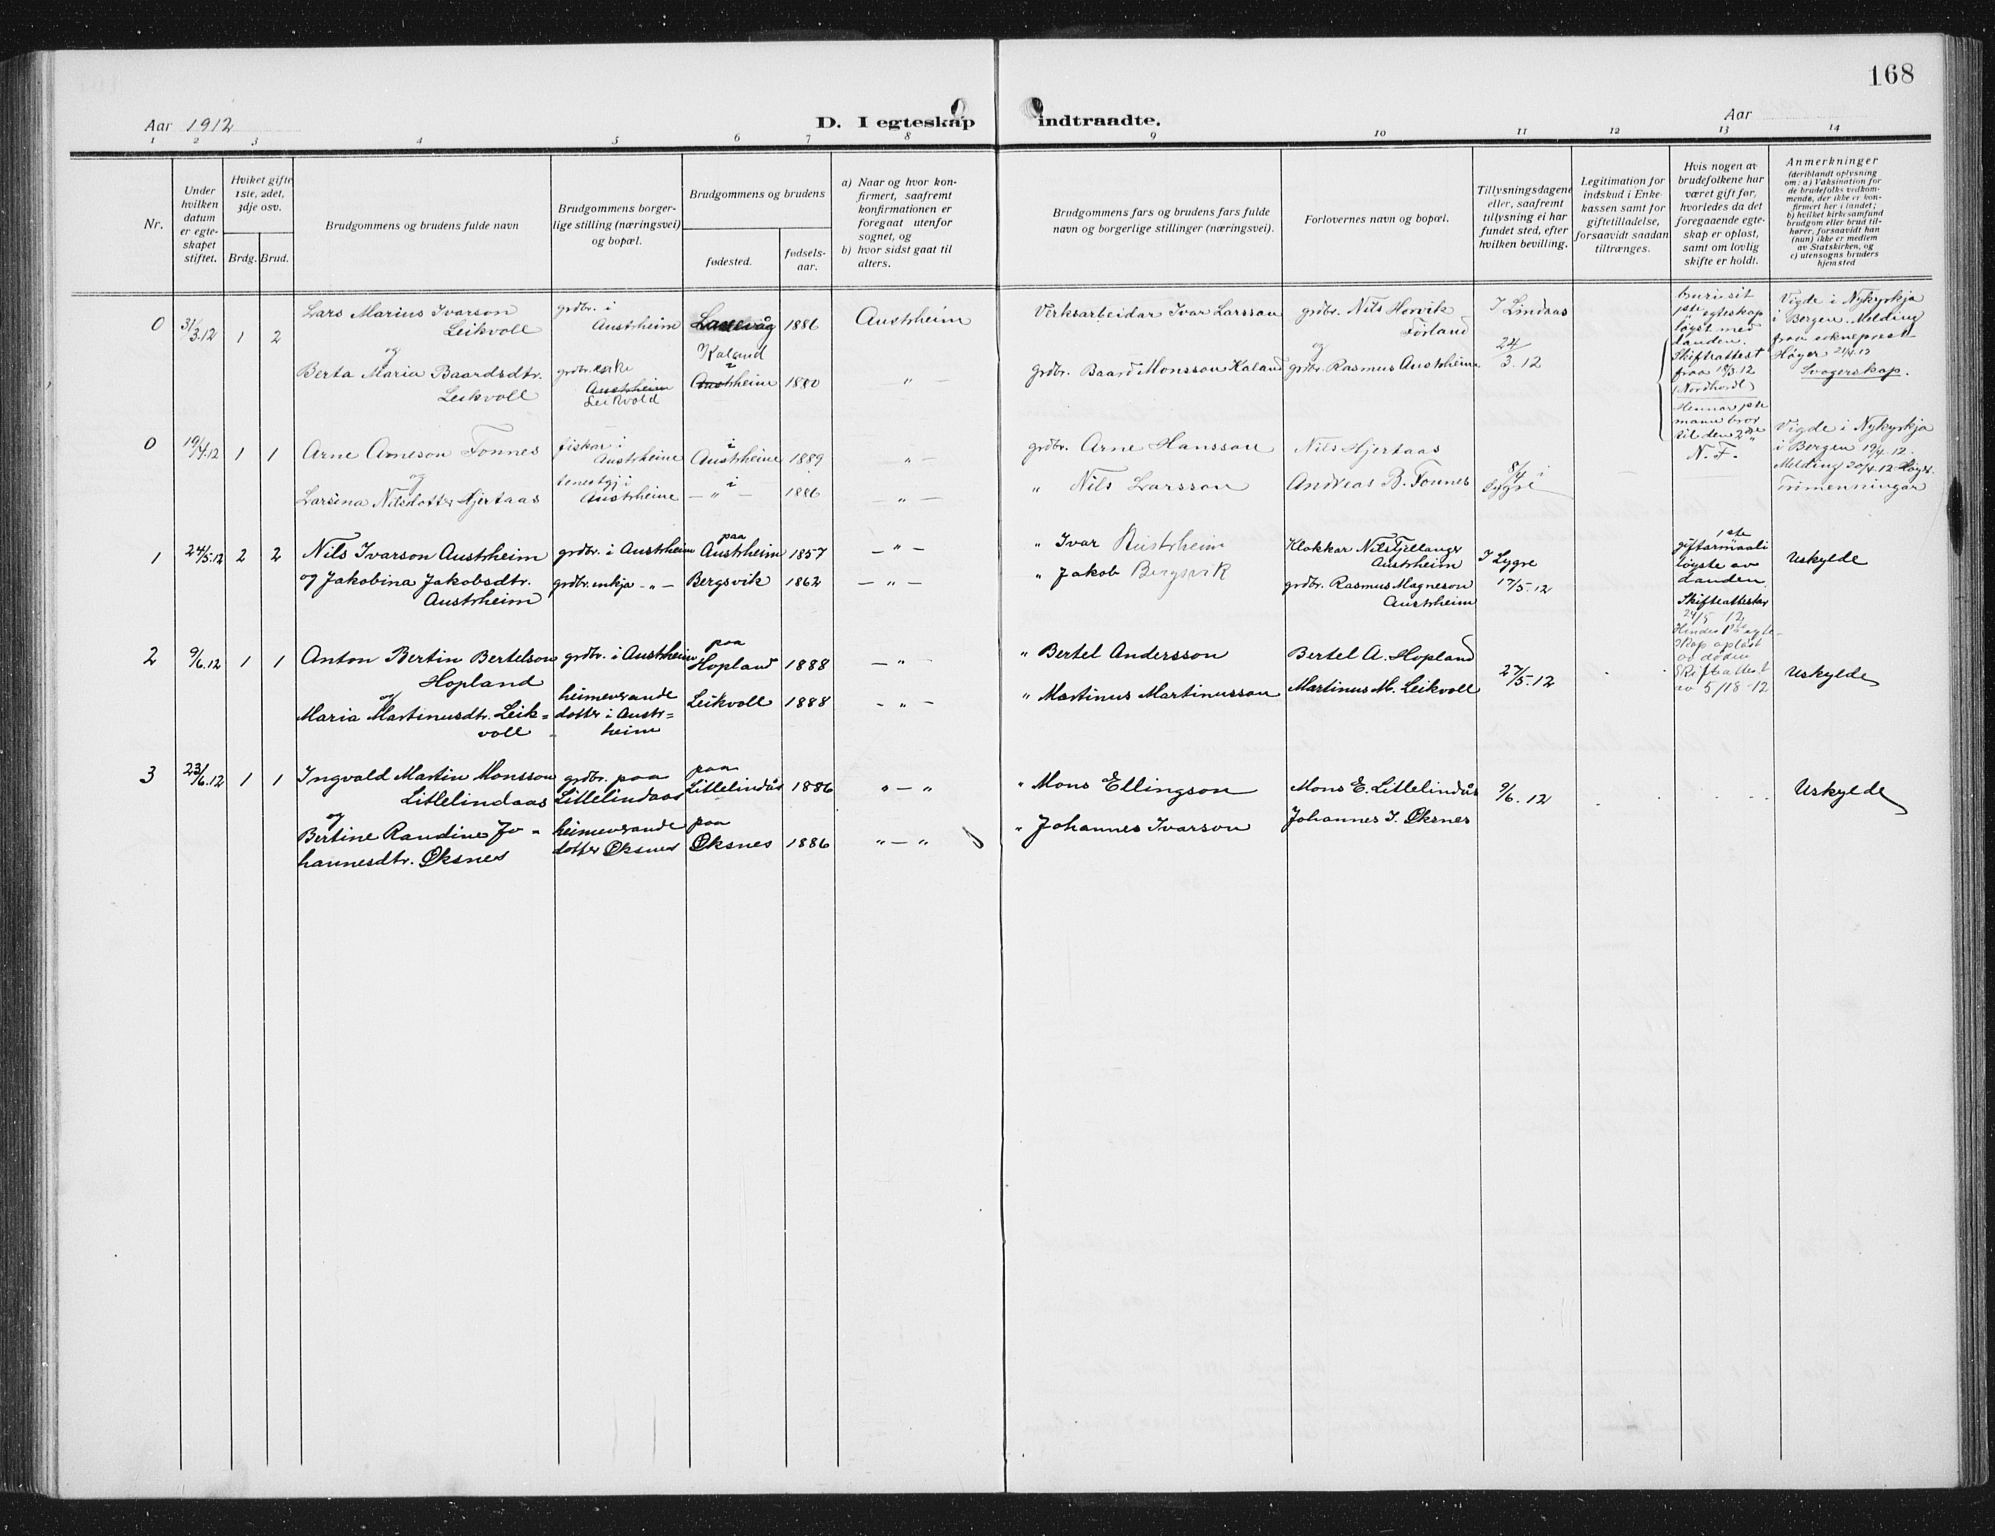 168
Aar 1912
D. I egteskap indtraadte.
Aar
1 2 3 4 5 6 7 8 9 10 11 12 13 14
Nr.
Under
hvilken
datum
er egte-
skapet
stiftet.
Hvilket gifte
1ste, 2det,
3dje osv.
Brdg. Brud.
Brudgommens og brudens fulde navn
Brudgommens borger-
lige stilling (næringsvei)
og bopæl.
Brudgommens og brudens
fødested.
fødsels-
aar.
a) Naar og hvor kon-
firmert, saafremt
konfirmationen er
foregaat utenfor
sognet, og
b) hvor sidst gaat til
alters.
Brudgommens fars og brudens fars fulde
navn og borgerlige stillinger (næringsvei).
Forlovernes navn og bopæl.
Tillysningsdagene
eller, saafremt
tillysning ei har
fundet sted, efter
hvilken bevilling.
Legitimation for
indskud i Enke-
kassen samt for
giftetilladelse,
forsaavidt saadan
tiltrænges.
Hvis nogen av
brudefolkene har
været gift før,
hvorledes da det
foregaaende egte-
skap er opløst,
samt om lovlig
skifte er holdt.
Anmerkninger
(deriblandt oplysning
om: a) Vaksination for
de brudefolks vedkom-
mende, der ikke er kon-
firmert her i landet;
b) hvilket kirkesamfund
brudgom eller brud til-
hører, forsaavidt han
(hun) ikke er medlem
av Statskirken, og
c) utensogns bruders
hjemsted
0 31/3.12 1 2
Lars Marius Ivarson
Leikvoll
og
Berta Maria Baardsdtr.
Leikvoll
grdbr. i
Austrheim
grdbr. enke
Austrheim
Leikvold
1886
Kaland
i
Austrheim 1880
Austrheim
" —
Verksarbeidar Ivar Larsson
grdbr. Baard Monsson Kaland
grdbr. Nils Horvik
Førland
og
grdbr. Rasmus Austrheim
I Lindaas
24/3.12
1ste egteskap
løyst med
dauden.
Skifteattest
fraa 19/3.12
(Nordhordl)
Hennar 1ste
mann bror
til den 2dre
N. F.
Vigde i Nykyrkja
i Bergen. Melding
fraa sokneprest
Høyer 21/4.12
Svogerskap.
0 19/4.12 1 1
Arne Arneson Fonnes
og
Larsina Nilsdotter Hjertaas
fiskar i
Austrheim
tenestgj i
Austrheim
i
Austrheim 1889
i
— " — 1886
— " —
— " —
grdbr. Arne Hansson
" Nils Larsson
Nils Hjertaas
Andreas B. Fonnes
8/4 i
Lygre
Vigde i Nykyrkja
i Bergen 19/4.12.
Melding 20/4.12 Høyer.
Trimenningar
1 24/5.12 2 2
Nils Ivarson Austrheim
og Jakobina Jakobsdtr.
Austrheim
grdbr. i Austrheim
grdbr. enkja — " —
paa
Austrheim 1857
Bergsvik 1862
— " —
— " —
" Ivar Austrheim
" Jakob Bergsvik
Klokkar Nils Fjellanger
Austrheim
grdbr. Rasmus Magneson
Austrheim
I Lygre
17/5.12
1ste
giftarmaali
løyste av
dauden.
Skifteattestar
24/5 12
Hindes 1ste egte-
skap opløst
av døden
Skifteattest
av 5/18-12
Uskylde
2 9/6.12 1 1
Anton Bertin Bertelson
Hopland
og
Maria Martinusdtr. Leik-
voll
grdbr. i Austrheim
heimeverande
dotter i Austr-
heim
paa
Hopland 1888
Leikvoll 1888
— " —
— " —
" Bertel Andersson
" Martinus Martinusson
Bertel A. Hopland
Martinus M. Leikvoll
27/5.12
Uskylde
3 23/6.12 1 1
Ingvald Martin Monsson
Litlelindaas
og
Bertine Randine Jo-
hannesdtr. Øksnes
grdbr. paa
Litlelindaas
heimeverande
dotter Øksnes
paa
Litlelindås 1886
paa
Øksnes 1886
" — "
" — "
" Mons Ellingson
" Johannes Ivarson
Mons E. Litlelindås
Johannes I. Øksnes
9/6.12
Uskylde